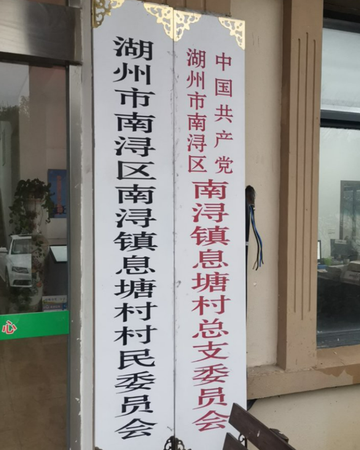 中国共产党
湖州市南浔区
南浔镇息塘村总支委员会
湖州市南浔区南浔镇息塘村村民委员会
心